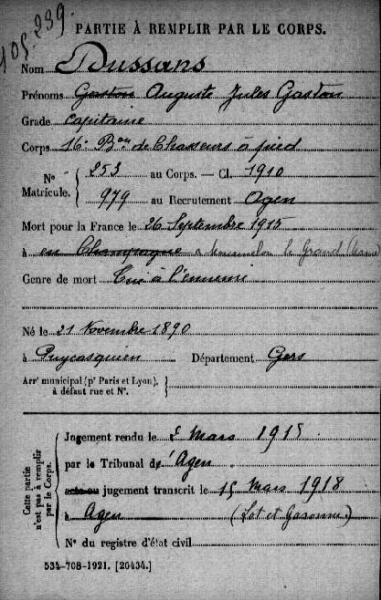 105.239.
PARTIE À REMPLIR PAR LE CORPS.
Nom Dussans
Prénoms Gaston Auguste Jules Gaston
Grade Capitaine
Corps 16e Bon de Chasseurs à pied
N° Matricule. 253 au Corps. — Cl. 1910
979 au Recrutement Agen
Mort pour la France le 26 Septembre 1915
à en Champagne a Mourmelon le Grand (Marne)
Genre de mort Tué à l'ennemi
Né le 21 Novembre 1890
à Puycasquier Département Gers
Arrt municipal (pr Paris et Lyon),
à défaut rue et N°.
Cette partie n'est pas à remplir par le Corps.
Jugement rendu le 2 Mars 1918
par le Tribunal de Agen
acte ou jugement transcrit le 15 Mars 1918
à Agen (Lot et Garonne)
N° du registre d'état civil
534-708-1921. [26434.]